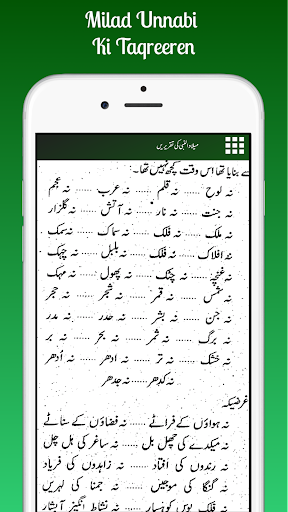 Milad Unnabi
Ki Taqreeren
میلاد النبی کی تقریریں
سے بنایا تھا اس وقت کچھ نہیں تھا۔
نہ لوح ..... نہ قلم ..... نہ عرب ..... نہ عجم
نہ جنت ..... نہ نار ..... نہ آتش ..... نہ گلزار
نہ ملک ..... نہ فلک ..... نہ سماک ..... نہ سمک
نہ افلاک ..... نہ فلک ..... نہ بلبل ..... نہ چہک
نہ غنچے ..... نہ چٹک ..... نہ پھول ..... نہ مہک
نہ شمس ..... نہ قمر ..... نہ شجر ..... نہ حجر
نہ جن ..... نہ بشر ..... نہ حدر ..... نہ مدر
نہ برگ ..... نہ ثمر ..... نہ بحر ..... نہ بر
نہ خشک ..... نہ تر ..... نہ ادھر ..... نہ اُدھر
نہ کدھر ..... نہ جدھر
غرضیکہ
نہ ہواؤں کے فراٹے ..... نہ فضاؤں کے سناٹے
نہ میکدے کی چھل بل ..... نہ ساغر کی بل چل
نہ رندوں کی افتاد ..... نہ زاہدوں کی فریاد
نہ گنگا کی موجیں ..... نہ جمنا کی لہریں
نہ فلک بوس کوہسار ..... نہ نشاط انگیز آبشار